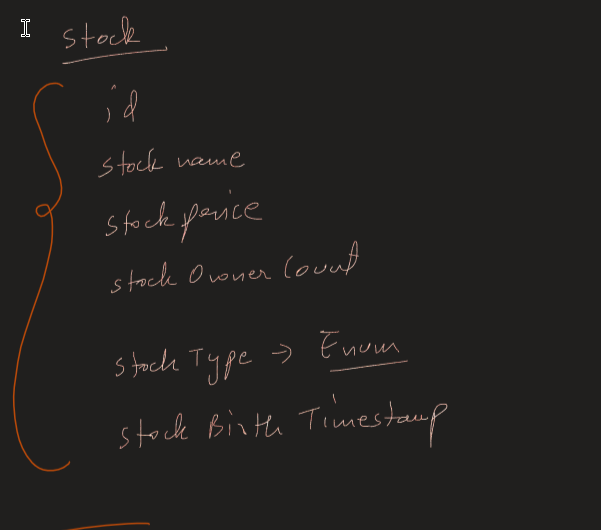 Stock
id
stock name
stock price
stock Owner Count
stock Type → Enum
stock Birth Timestamp